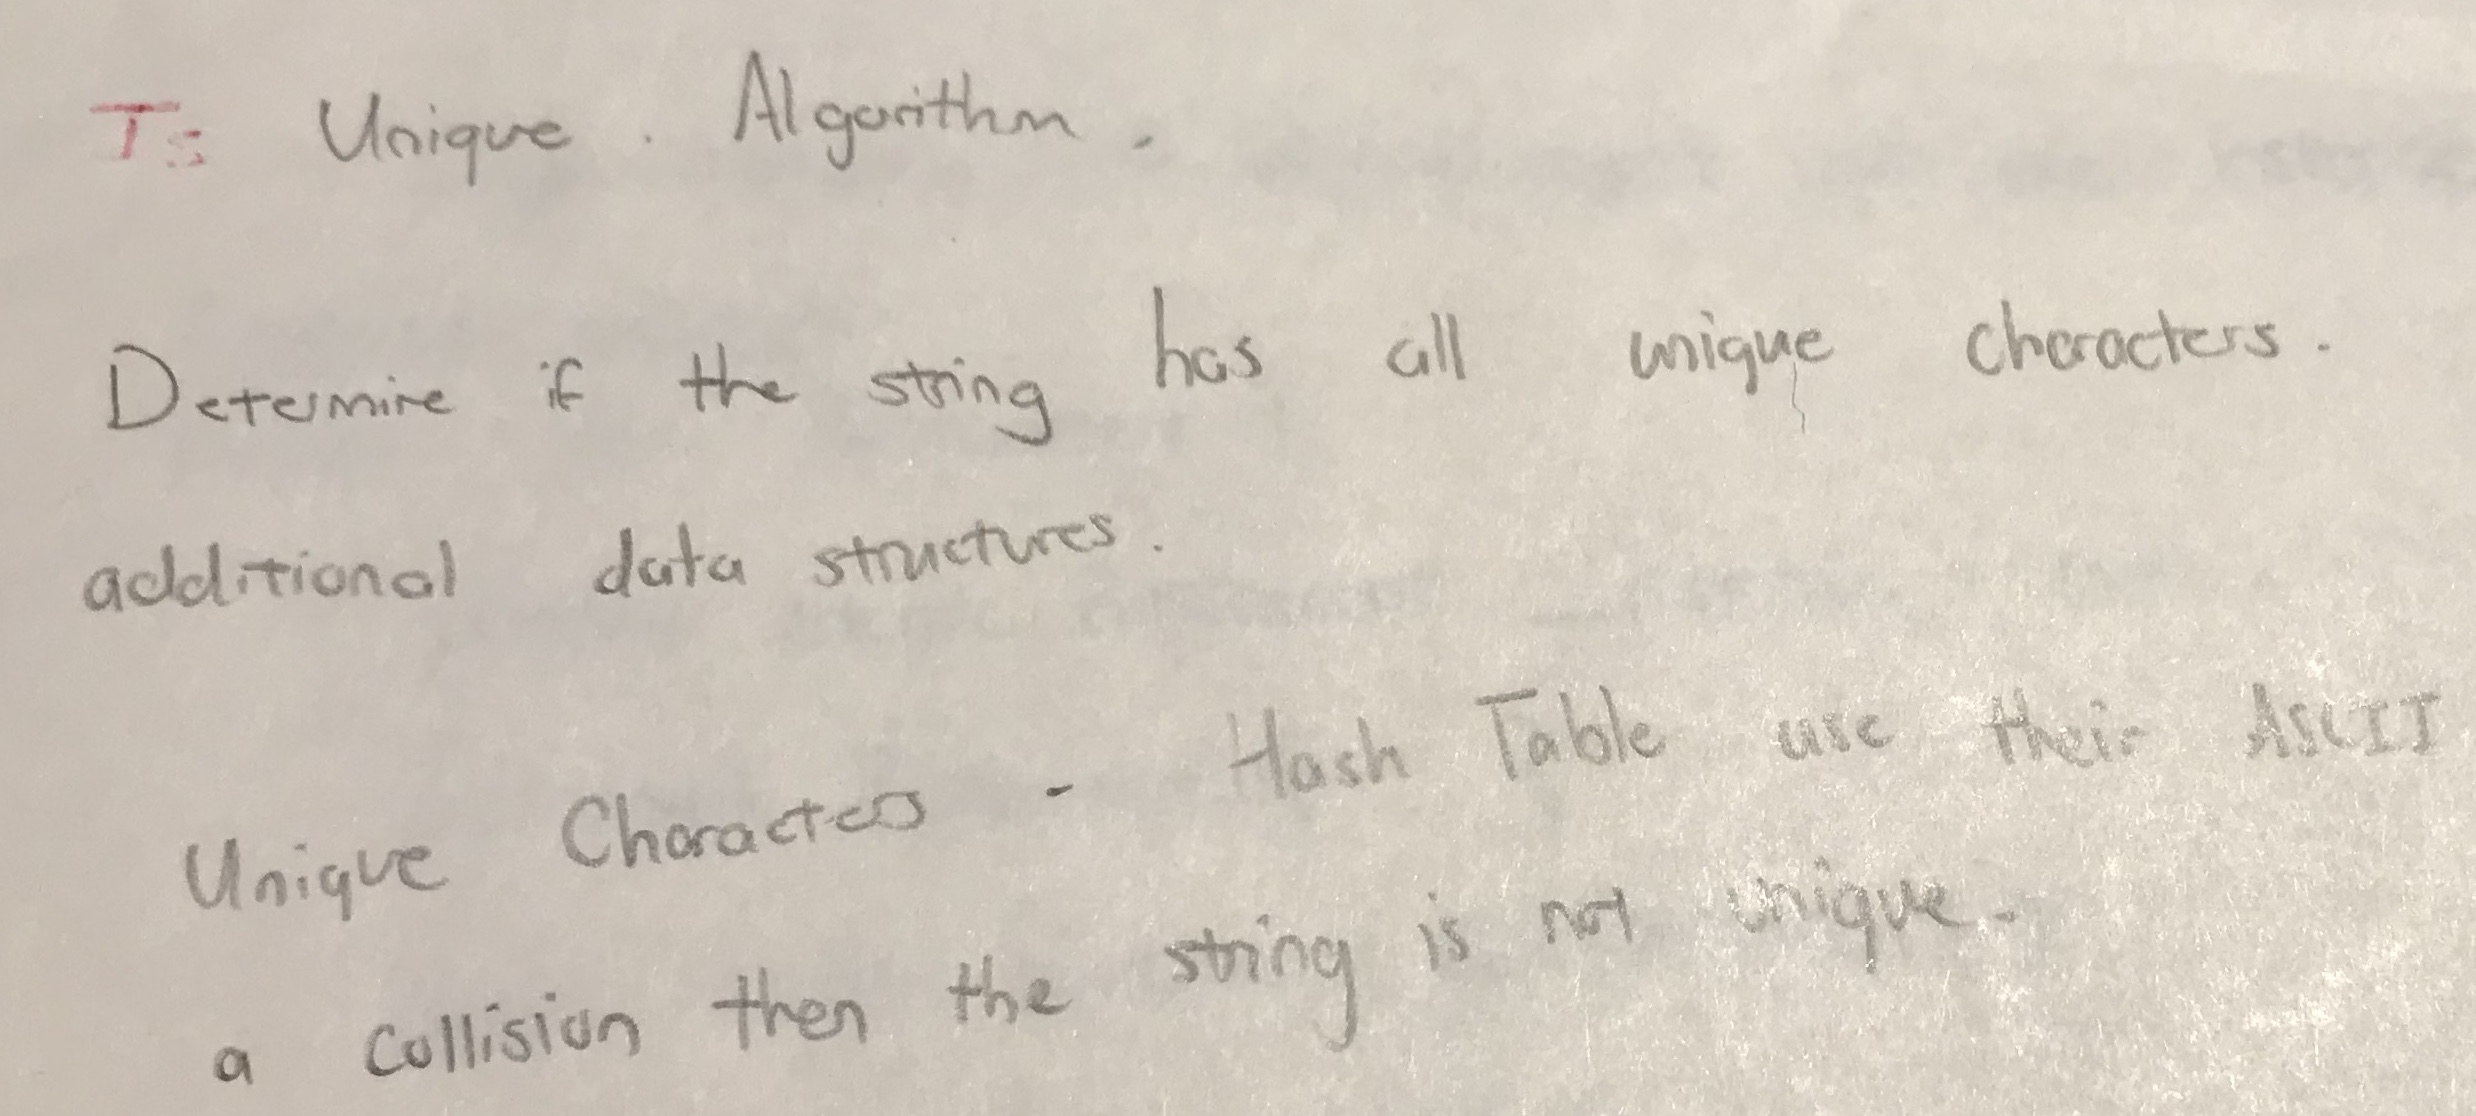 Is Unique. Algorithm.
Determine if the string has all unique characters.
additional data structures.
Unique Characters - Hash Table use their ASCII
a collision then the string is not unique.